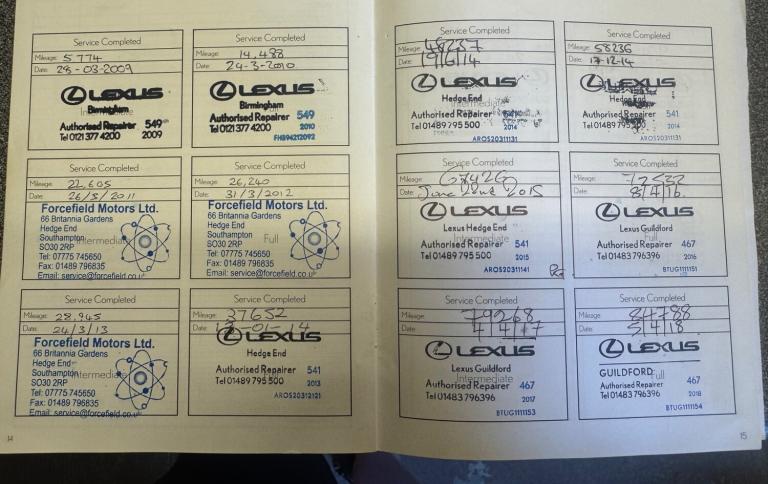 Service Completed
Mileage: 5774
Date: 28-03-2009
LEXUS
Birmingham
Authorised Repairer 549
Tel 0121 377 4200 2009
Service Completed
Mileage: 14,488
Date: 24-3-2010
LEXUS
Birmingham
Full
Authorised Repairer 549
Tel 0121 377 4200 2010
FHB94212092
Service Completed
Mileage: 22,605
Date: 26/3/2011
Forcefield Motors Ltd.
66 Britannia Gardens
Hedge End
Southampton
Intermediate
SO30 2RP
Tel: 07775 745650
Fax: 01489 796835
Email: service@forcefield.co.uk
Service Completed
Mileage: 26,240
Date: 31/3/2012
Forcefield Motors Ltd.
66 Britannia Gardens
Hedge End
Southampton
Full
SO30 2RP
Tel: 07775 745650
Fax: 01489 796835
Email: service@forcefield.co.uk
Service Completed
Mileage: 28,945
Date: 24/3/13
Forcefield Motors Ltd.
66 Britannia Gardens
Hedge End
Southampton
Intermediate
SO30 2RP
Tel: 07775 745650
Fax: 01489 796835
Email: service@forcefield.co.uk
Service Completed
Mileage: 37652
Date: -01-14
LEXUS
Hedge End
Authorised Repairer 541
Tel 01489 795 500 2013
AROS20312121
14
Service Completed
Mileage:
Date: 19/6/14
LEXUS
Hedge End
Intermediate
Authorised Repairer
Tel 01489 795 500 2014
AROS20311131
Service Completed
Mileage: 58236
Date: 17-12-14
LEXUS
Hedge End
Authorised Repairer 541
Tel 01489 795 500 2014
AROS20311131
Service Completed
Mileage: 67426
Date: June 22nd 2015
LEXUS
Lexus Hedge End
Intermediate
Authorised Repairer 541
Tel 01489 795 500 2015
AROS20311141
Service Completed
Mileage:
Date: 8/4/16
LEXUS
Lexus Guildford
Full
Authorised Repairer 467
Tel 01483 796396 2016
BTUG1111151
Service Completed
Mileage: 79268
Date: 4/4/17
LEXUS
Lexus Guildford
Intermediate
Authorised Repairer 467
Tel 01483 796396 2017
BTUG1111153
Service Completed
Mileage: 84788
Date: 5/4/18
LEXUS
GUILDFORD
Full
Authorised Repairer 467
Tel 01483 796396 2018
BTUG1111154
15